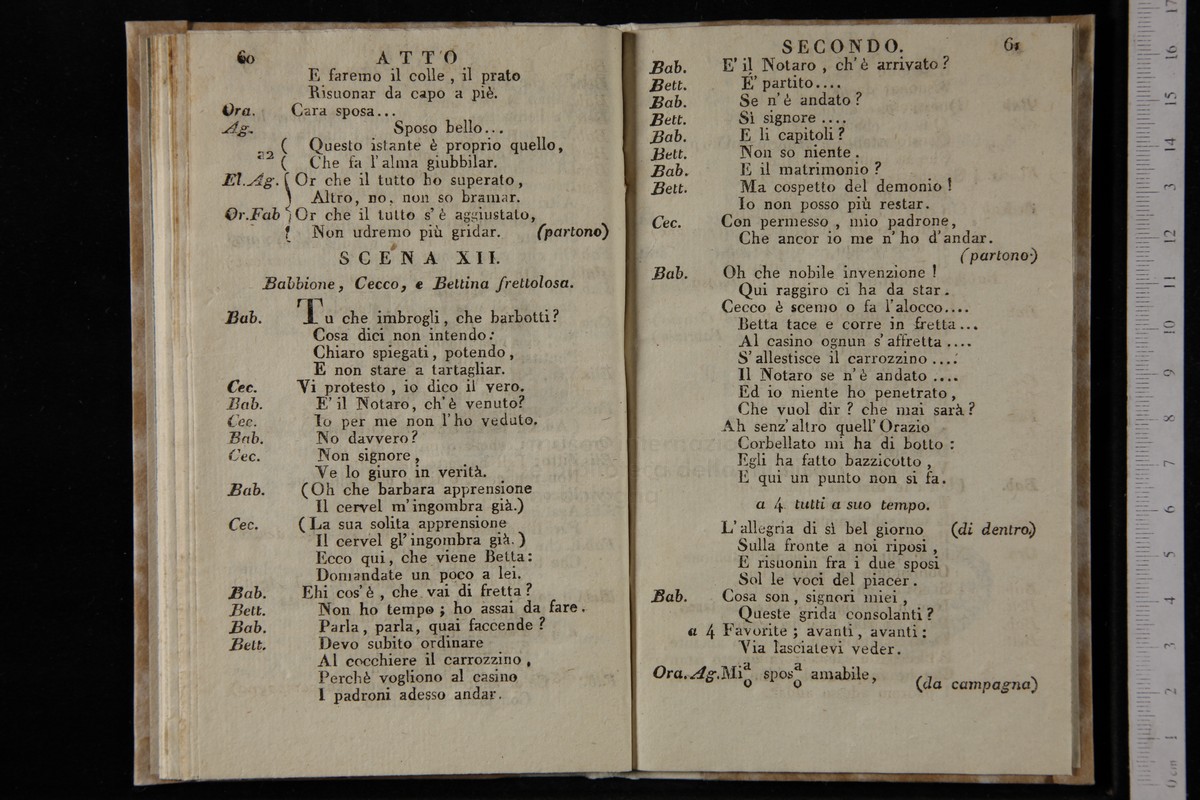 60 ATTO
E faremo il colle, il prato
Risuonar da capo a piè.
Ora. Cara sposa...
Ag. Sposo bello...
a2 ( Questo istante è proprio quello,
( Che fa l'alma giubbilar.
El.Ag. ( Or che il tutto ho superato,
) Altro, no, non so bramar.
Or.Fab ) Or che il tutto s'è aggiustato,
( Non udremo più gridar. (partono)
SCENA XII.
Babbione, Cecco, e Bettina frettolosa.
Bab. Tu che imbrogli, che barbotti?
Cosa dici non intendo:
Chiaro spiegati, potendo,
E non stare a tartagliar.
Cec. Vi protesto, io dico il vero.
Bab. E' il Notaro, ch'è venuto?
Cec. Io per me non l'ho veduto.
Bab. No davvero?
Cec. Non signore,
Ve lo giuro in verità.
Bab. (Oh che barbara apprensione
Il cervel m'ingombra già.)
Cec. (La sua solita apprensione
Il cervel gl'ingombra già.)
Ecco qui, che viene Betta:
Domandate un poco a lei.
Bab. Ehi cos'è, che vai di fretta?
Bett. Non ho tempo; ho assai da fare.
Bab. Parla, parla, quai faccende?
Bett. Devo subito ordinare
Al cocchiere il carrozzino,
Perchè vogliono al casino
I padroni adesso andar.
SECONDO. 61
Bab. E' il Notaro, ch'è arrivato?
Bett. E' partito....
Bab. Se n'è andato?
Bett. Sì signore....
Bab. E li capitoli?
Bett. Non so niente.
Bab. E il matrimonio?
Bett. Ma cospetto del demonio!
Io non posso più restar.
Cec. Con permesso, mio padrone,
Che ancor io me n'ho d'andar.
(partono)
Bab. Oh che nobile invenzione!
Qui raggiro ci ha da star.
Cecco è scemo o fa l'alocco....
Betta tace e corre in fretta...
Al casino ognun s'affretta....
S'allestisce il carrozzino....
Il Notaro se n'è andato....
Ed io niente ho penetrato,
Che vuol dir? che mai sarà?
Ah senz'altro quell'Orazio
Corbellato mi ha di botto:
Egli ha fatto bazzicotto,
E qui un punto non si fa.
a 4 tutti a suo tempo.
L'allegria di sì bel giorno (di dentro)
Sulla fronte a noi riposi,
E risuonin fra i due sposi
Sol le voci del piacer.
Bab. Cosa son, signori miei,
Queste grida consolanti?
a 4 Favorite; avanti, avanti:
Via lasciatevi veder.
Ora.Ag. Mi a/o spos a/o amabile, (da campagna)
0 cm 1 2 3 4 5 6 7 8 9 10 11 12 13 14 15 16 17